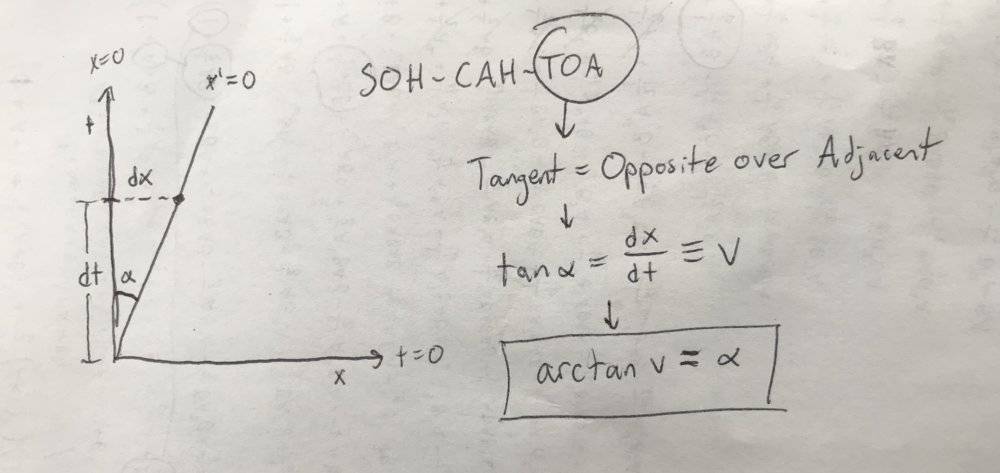 x=0
x'=0
t
dx
dt
α
x
t=0
SOH-CAH-TOA
↓
Tangent = Opposite over Adjacent
↓
tan α = dx/dt ≡ V
↓
arctan v = α